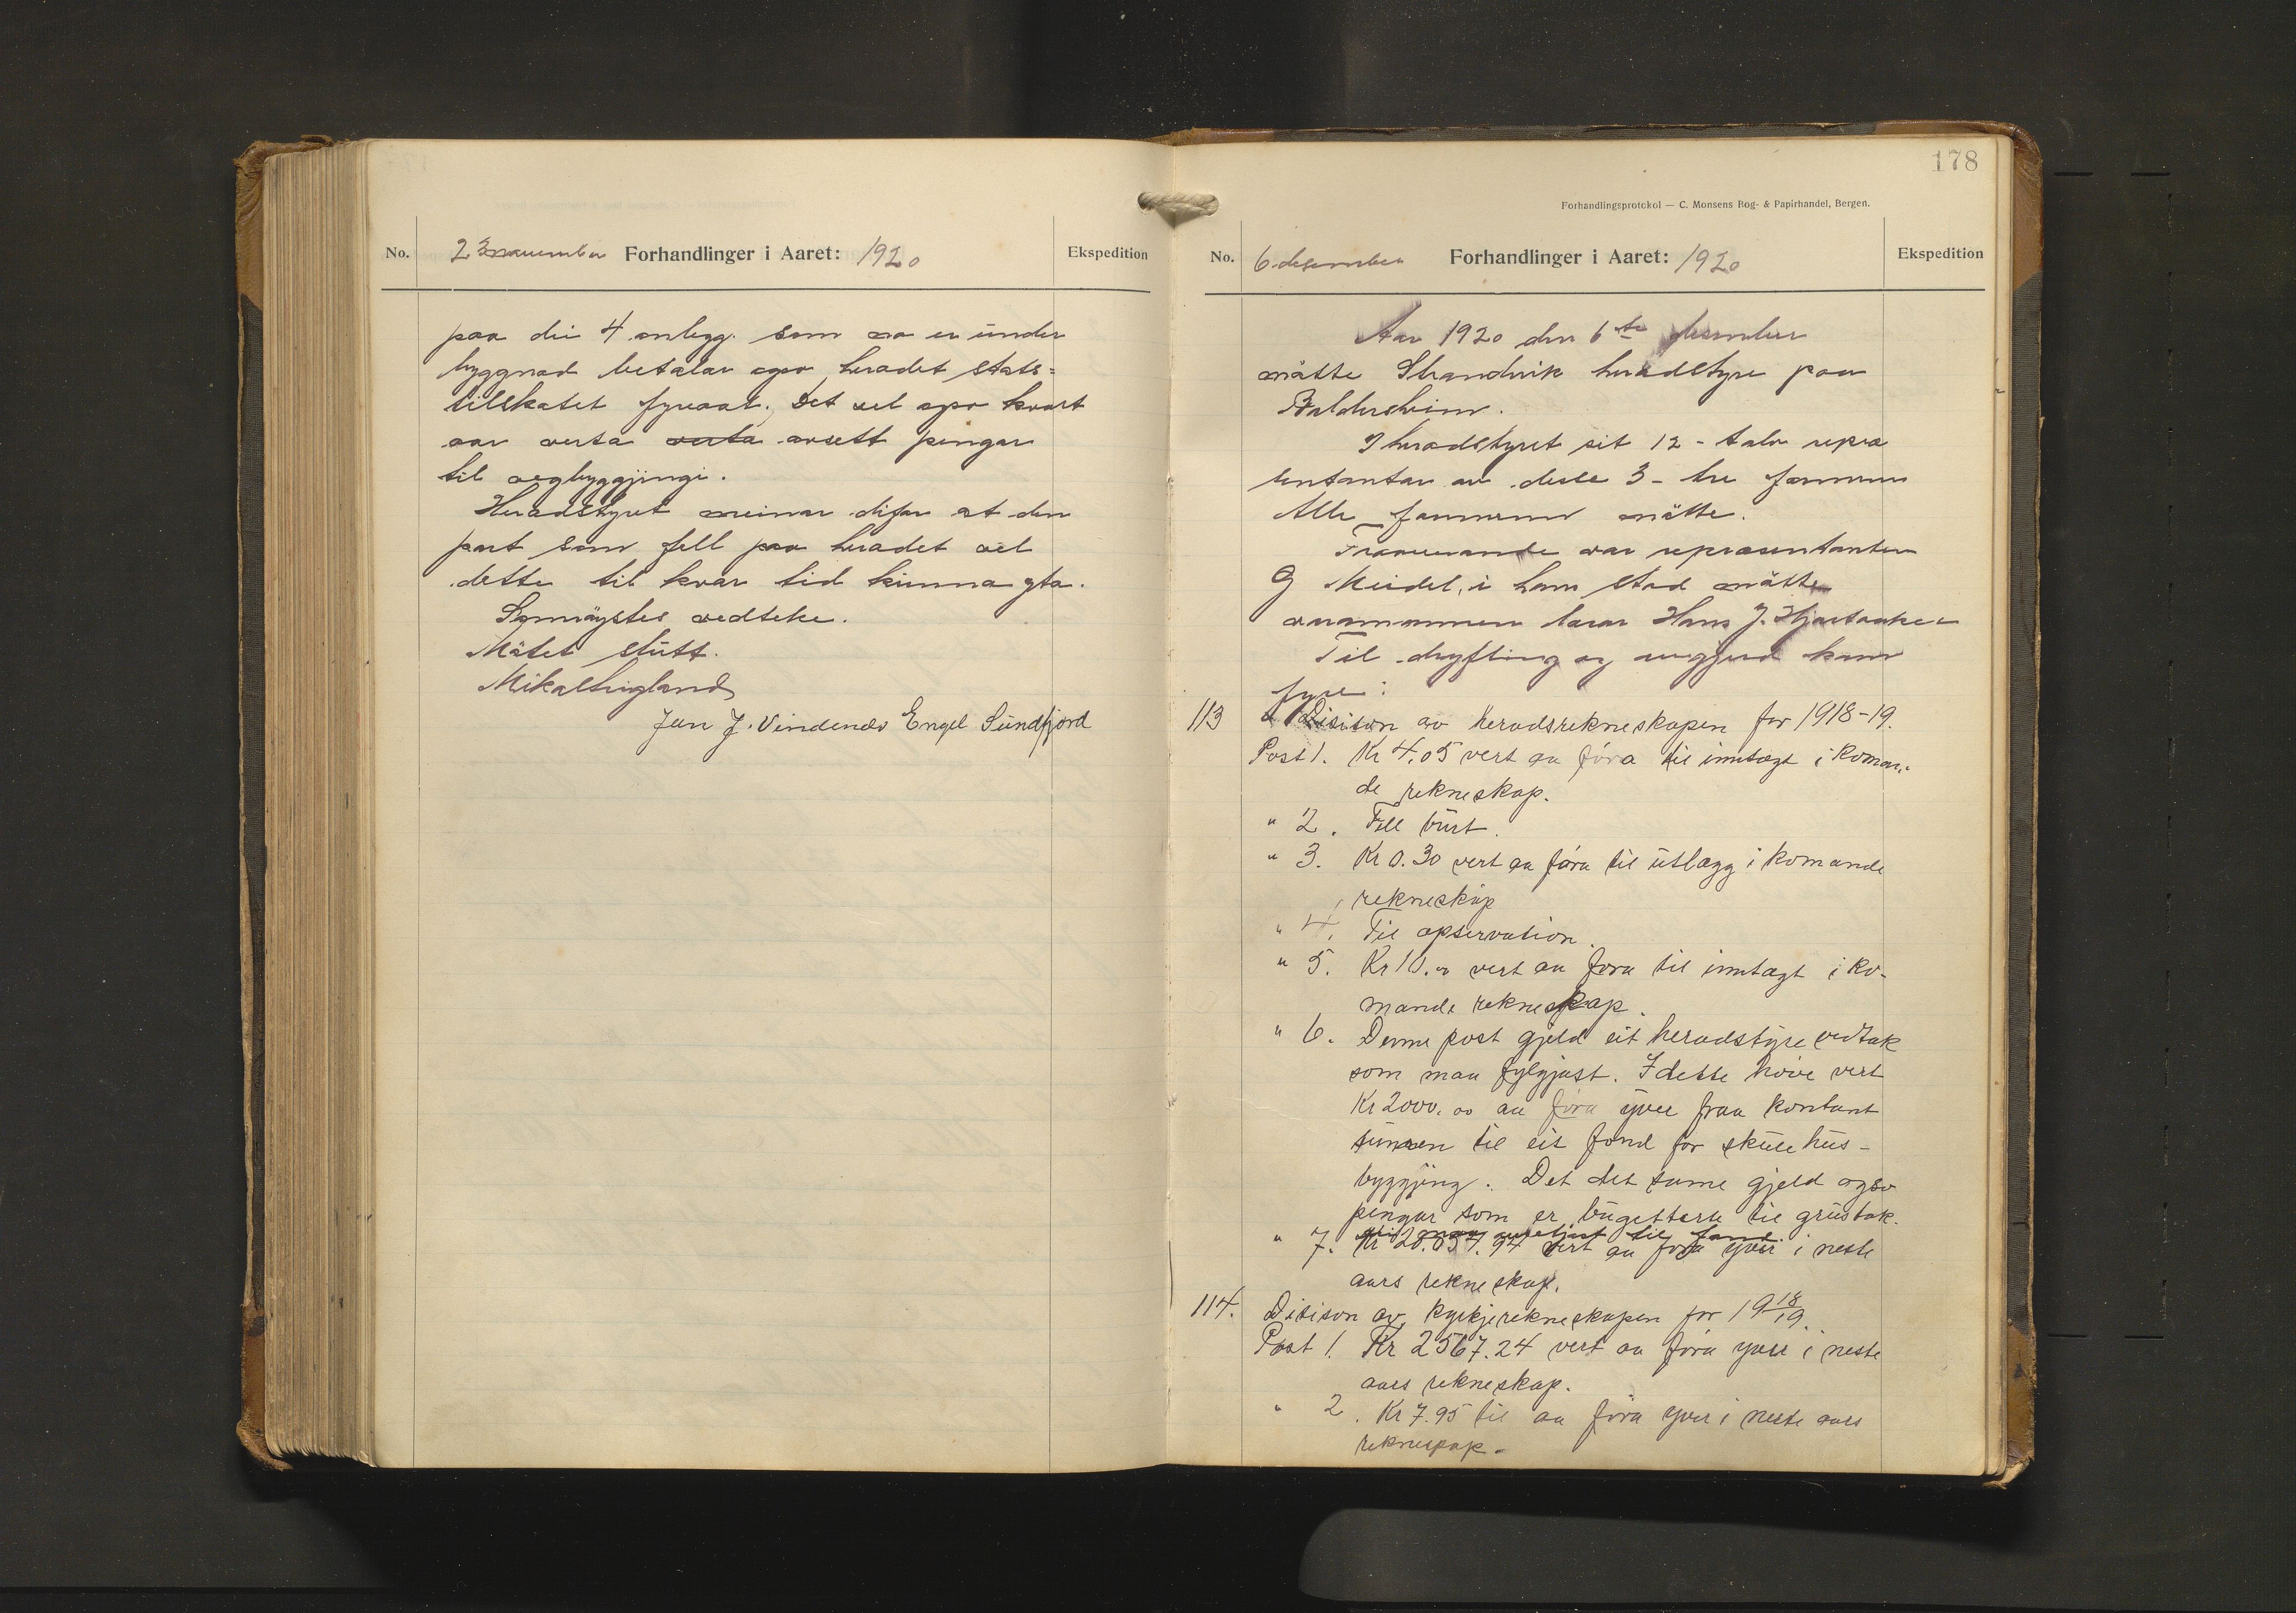 No.
23 november Forhandlinger i Aaret: 1920
Ekspedition
paa dei 4 anlegg. som no er under
byggnad betalar ogso heradet stats-
tilskotet fyreaat. Det vil ogso kvart
aar verta verta avsett pengar
til vegbyggjingi.
Heradstyret meinar difor at den
part som fell paa heradet vil
dette til kvar tid kunna yta.
Samröystes vedteke.
Mötet slutt.
Mikal Lygland
Jan J. Vindenes Engel Sundfjord
178
Forhandlingsprotokol — C. Monsens Bog- & Papirhandel, Bergen.
No.
6. desember Forhandlinger i Aaret: 1920
Ekspedition
Aar 1920 den 6te desember
mötte Strandvik heradstyre paa
Baldersheim.
I heradstyret sit 12 - tolv repræ
sentantar av desse 3 - tre formenn
Alle formenn mötte.
Fraaverande var representanten
G Meidel, i hans stad mötte
varamannen lærar Hans J. Hjartaaker
Til dryfting og avgjerd kom
fyre:
113 Disison av heradsrekneskapen for 1918-19.
Post 1. Kr 4.05 vert aa föra til inntægt i koman-
de rekneskap.
" 2. Fell burt.
" 3. Kr 0.30 vert aa föra til utlægg i komande
rekneskap
" 4. Til opservation.
" 5. Kr 10.00 vert aa föra til inntægt i ko-
mande rekneskap.
" 6. Denne post gjeld eit heradstyrevedtak
som maa fylgjast. I dette höve vert
Kr 2000.00 aa föra yver fraa kontant
sumen til eit fond for skulehus-
byggjing. Det det same gjeld ogso
pengar som er bugetterte til grustak.
" 7. Kr 20.057.94 vert aa föra yver i neste
aars rekneskap.
114. Disison av kyrkjerekneskapen for 1918/19.
Post 1. Kr 2567.24 vert aa föra yver i neste
aars rekneskap.
" 2. Kr 7.95 til aa föra yver i neste aars
rekneskap.